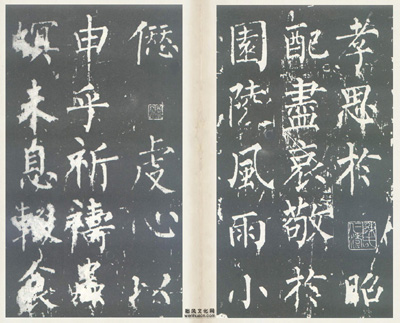 孝思於昭
配盡哀敬於
園陵風雨小
僁虔心以
申乎祈禱蟲
螟未息輟食